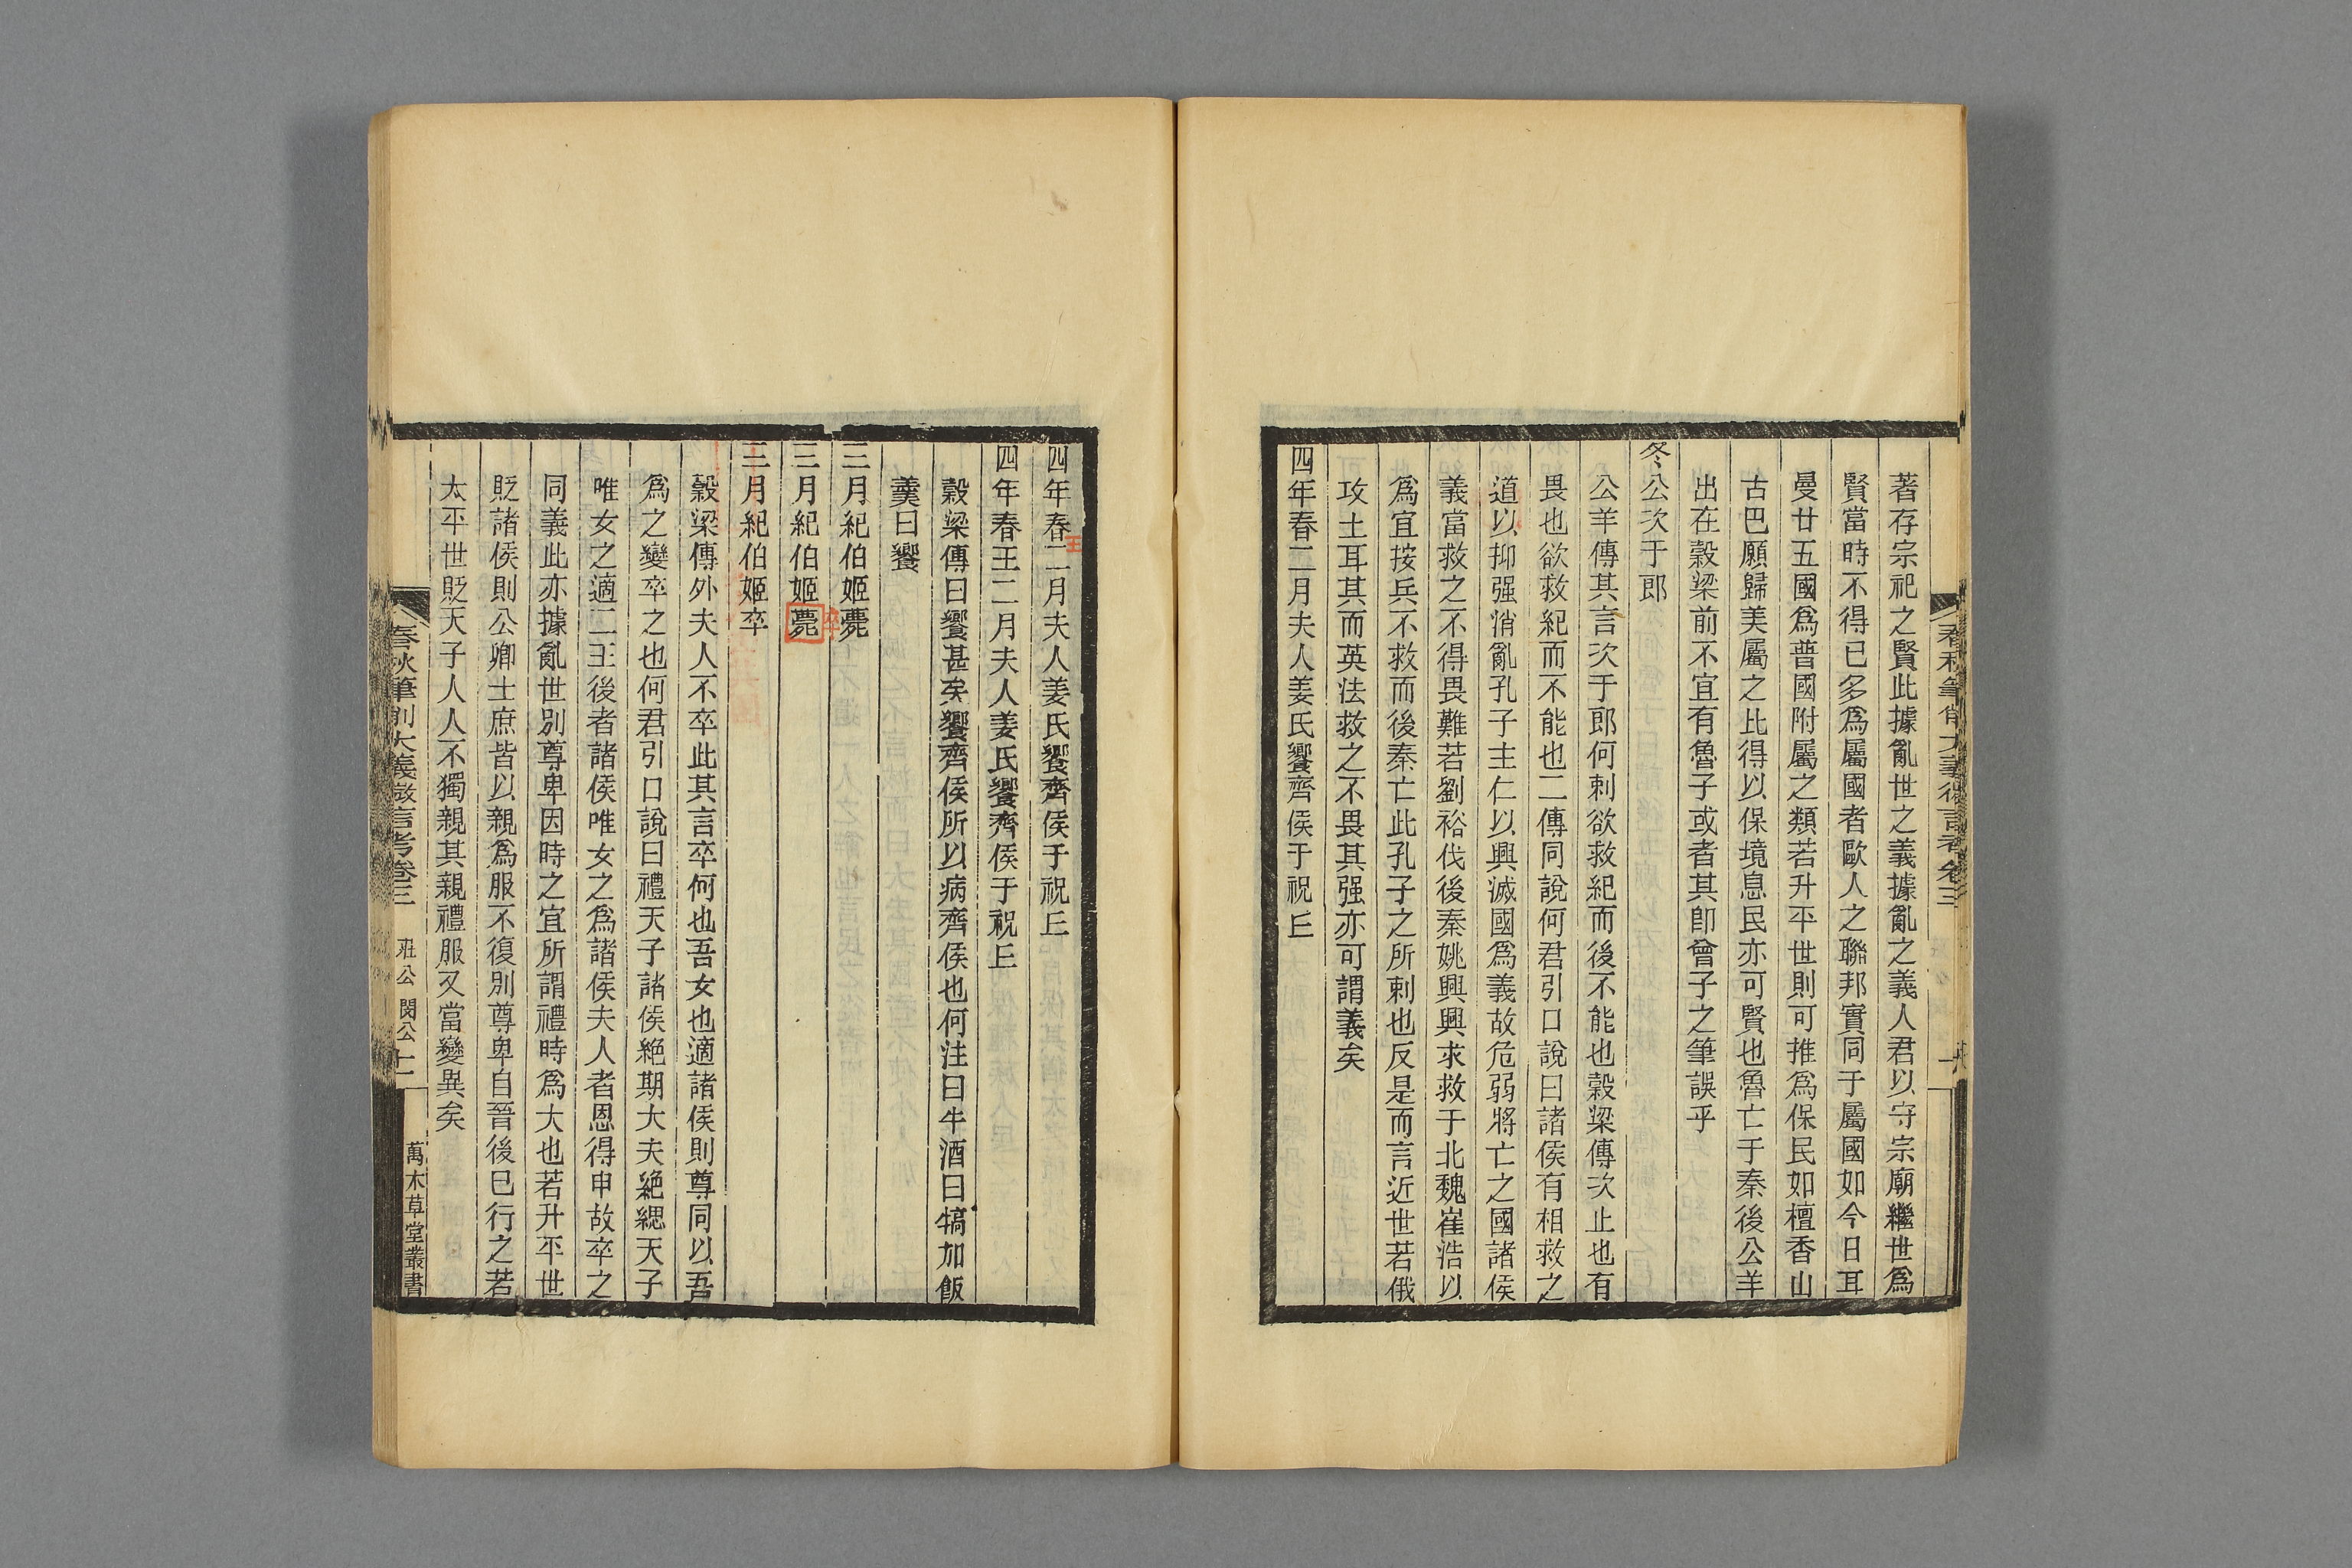 著存宗祀之賢此據亂世之義據亂之義人君以守宗廟繼世爲
賢當時不得已多爲屬國者歐人之聯邦實同于屬國如今日耳
曼廿五國爲普國附屬之類若升平世則可推爲保民如檀香山
古巴願歸美屬之比得以保境息民亦可賢也魯亡于秦後公羊
出在穀梁前不宜有魯子或者其卽曾子之筆誤乎
冬公次于郎
公羊傳其言次于郎何刺欲救紀而後不能也穀梁傳次止也有
畏也欲救紀而不能也二傳同說何君引口說曰諸侯有相救之
道以抑强消亂孔子主仁以興滅國爲義故危弱將亡之國諸侯
義當救之不得畏難若劉裕伐後秦姚興興求救于北魏崔浩以
爲宜按兵不救而後秦亡此孔子之所刺也反是而言近世若俄
攻土耳其而英法救之不畏其强亦可謂義矣
四年春二月夫人姜氏饗齊侯于祝丘
春秋筆削大義微言考卷三
四年春王二月夫人姜氏饗齊侯于祝丘
四年春王二月夫人姜氏饗齊侯于祝丘
穀梁傳曰饗甚矣饗齊侯所以病齊侯也何注曰牛酒曰犒加飯
羹曰饗
三月紀伯姬薨
卒
三月紀伯姬薨
三月紀伯姬卒
穀梁傳外夫人不卒此其言卒何也吾女也適諸侯則尊同以吾
爲之變卒之也何君引口說曰禮天子諸侯絶期大夫絶緦天子
唯女之適二王後者諸侯唯女之爲諸侯夫人者恩得申故卒之
同義此亦據亂世別尊卑因時之宜所謂禮時爲大也若升平世
貶諸侯則公卿士庶皆以親爲服不復別尊卑自晉後已行之若
太平世貶天子人人不獨親其親禮服又當變異矣
春秋筆削大義微言考卷三 莊公 閔公 十一 萬木草堂叢書